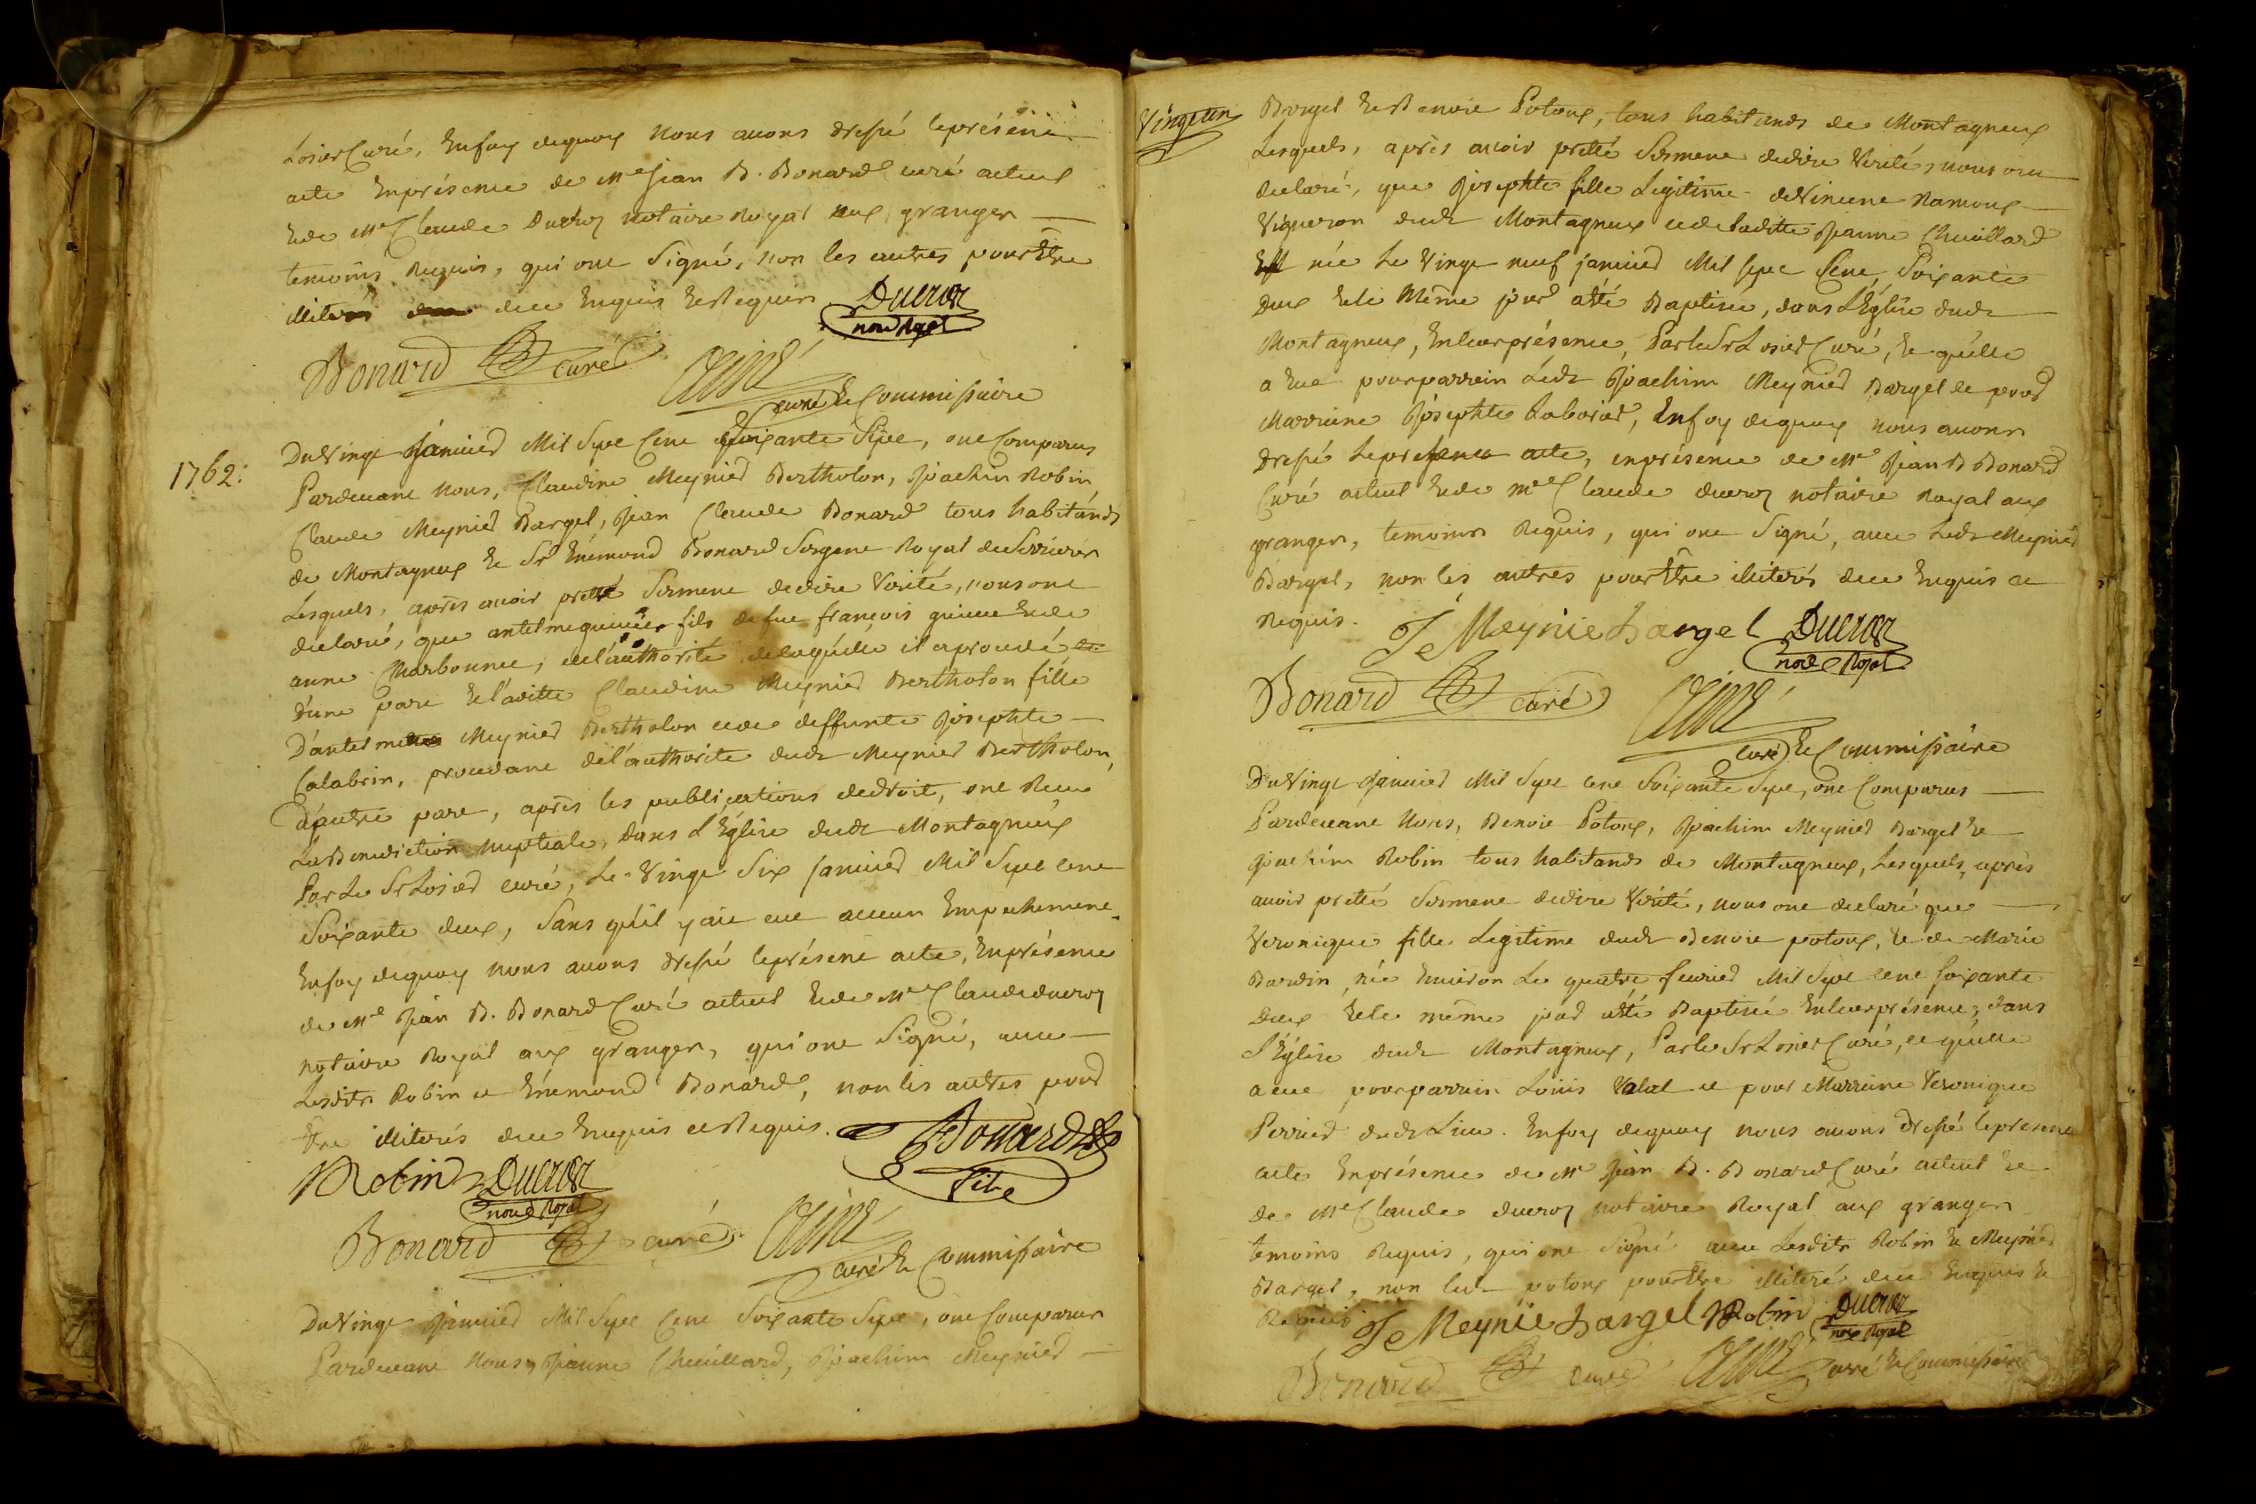 Losier Curé, Enfoy dequoy nous avons dressé leprésent
acte Enprésence de Me Jean B. Bonard curé actuel
Ede Me Claude Ducroz notaire Royal aux granges
temoins Requis, qui ont Signé, non les autres pour Etre
illiterés deu Enquis Et Requis Ducroz
nore Royal
Bonard curé Aimé
curé Et Commissaire
1762:
Du Vingt Janvier Mil Sept Cent Soixante Sept, ont Comparus
Pardevant nous, Claudine Meynier Bertholon, Joachim Robin
Claude Meynier Bargel, Jean Claude Bonard tous habitands
de Montagneux Et Sr Enémond Bonard Sergent Royal de
Lesquels, après avoir preté Serment dedire Verité, nous ont
declaré, que antelme fils de feu françois Ede
anne Charbonnet, del'authorité delaquelle il aprocedé
d'une part Et ladite Claudine Meynier Bertholon fille
D'antelme Meynier Bertholon et de deffunte Josephte
Calabrin, procedant del'authorite dudt Meynier Bertholon,
d'autre part, après les publications dedroit, ont Reçu
La Benediction Nuptiale, dans L'Eglise dudt Montagneux
Par Le Sr Losier curé, Le Vingt Six Janvier Mil Sept cent
Soixante deux, Sans qu'il y ait eut aucun Empechement
Enfoy dequoy nous avons dressé leprésent acte, Enprésence
de Me Jean B. Bonard Curé actuel Ede Me Claude ducroz
notaire Royal aux granges, qui ont Signé, avec
Lesdits Robin et Enémond Bonard, non les autres pour
Etre illiterés deu Enquis et Requis. Bonard
fils
Robin Ducroz
nore Royal
Bonard curé Aimé
curé Et Commissaire
Du Vingt Janvier Mil Sept Cent Soixante Sept, ont Comparus
Pardevant nous, Jeanne Chuillard, Joachim Meynier
Vingt un
Bargel Et Benoit Potoux, tous habitands de Montagneux
Lesquels, après avoir preté Serment dedire Verité, nous ont
declaré, que Josephte fille Legitime de Vincent Ramoux
Vigneron dudt Montagneux et de Ladite Jeanne Chuillard
Est née Le Vingt neuf janvier Mil sept Cent Soixante
Deux Et le Même jour a été Baptisée, dans L'Eglise dudt
Montagneux, Enleurprésence, Par le Sr Losier Curé, Et qu'elle
a Eut pour parrein Ledt Joachim Meynier Bargel et pour
Marreine Josephte Laborier, Enfoy dequoy nous avons
Dressé Lepresent acte, enprésence de Me Jean B Bonard
Curé actuel Ede Me Claude ducroz notaire Royal aux
granges, temoins Requis, qui ont Signé, avec Ledt Meynier
Bargel, non les autres pour Etre illiterés deu Enquis et
Requis. Je Meynie bargel Ducroz
nore Royal
Bonard curé Aimé
Curé Et Commissaire
Du Vingt Janvier Mil Sept cent Soixante Sept, ont Comparus
Pardevant Nous, Benoit Potoux, Joachim Meynier Bargel Et
Joachim Robin tous habitands de Montagneux, Lesquels, après
avoir preté Serment dedire Verité, nous ont declaré que
Veronique fille Legitime dudt Benoit potoux, Et de Marie
Bardin, née Environ Le quatre fevrier Mil Sept cent soixante
Deux Et le même jour a été Baptisé Enleurprésence, dans
L'Eglise dudt Montagneux, Par le Sr Losier Curé, et qu'elle
a eut pour parrain Loüis Valat et pour Marreine Veronique
Perrier dudt Lieu. Enfoy dequoy nous avons dressé lepresent
acte Enprésence de Me Jean B. Bonard Curé actuel Et
de Me Claude ducroz notaire Royal aux granges
temoins Requis, qui ont Signé avec Lesdits Robin Et Meynier
Bargel, non ledt potoux pour Etre illiteré deu Enquis Et
Requis Je Meynie bargel Robin Ducroz
nore Royal
Bonard curé Aimé curé Et Commissaire